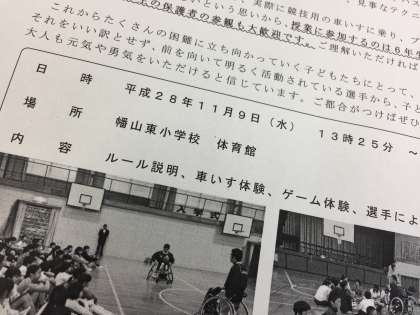 実際に競技用の車いすに乗り、プ
見事なテクニ
の保護者の参観も大歓迎です。ご理解いただければ
という思いから、授業に参加するのは6年
これからたくさんの困難に立ち向かっていく子どもたちにとって、
それをいい訳とせず、前を向いて明るく活動されている選手から、子
大人も元気や勇気をいただけると信じています。ご都合がつけばぜひ
日時 平成28年11月9日(水) 13時25分 ~
場所 幡山東小学校 体育館
内容 ルール説明、車いす体験、ゲーム体験、選手によ
入学式